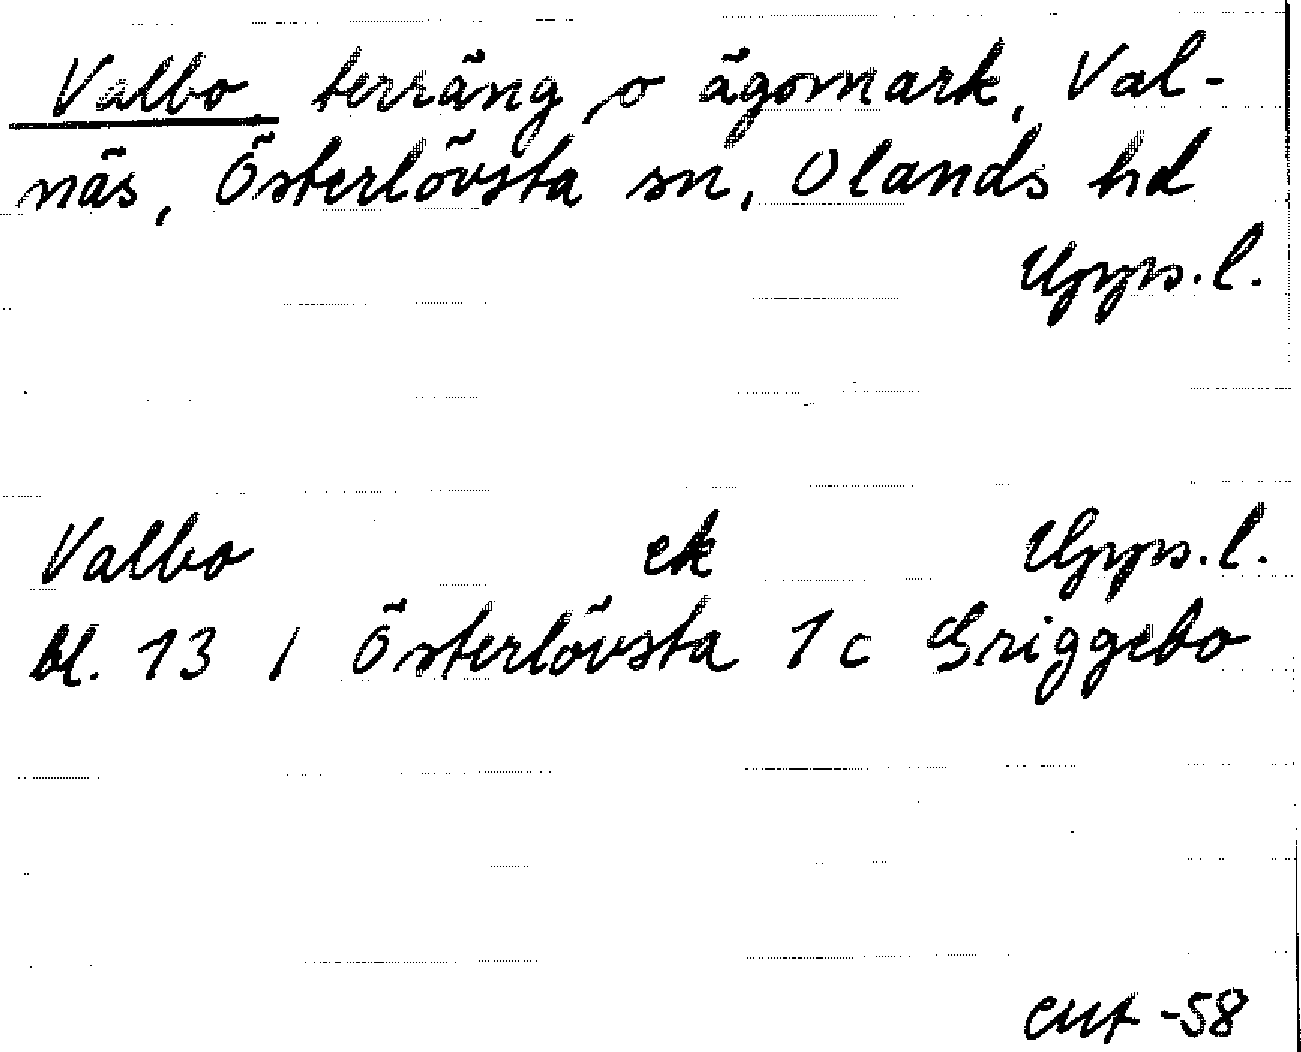 Valbo, terräng o ägomark, Val-
näs, Österlövsta sn, Olands hd
Upps.l.
Valbo ek Upps.l.
bl. 13 I Österlövsta 1 c Griggebo
-58